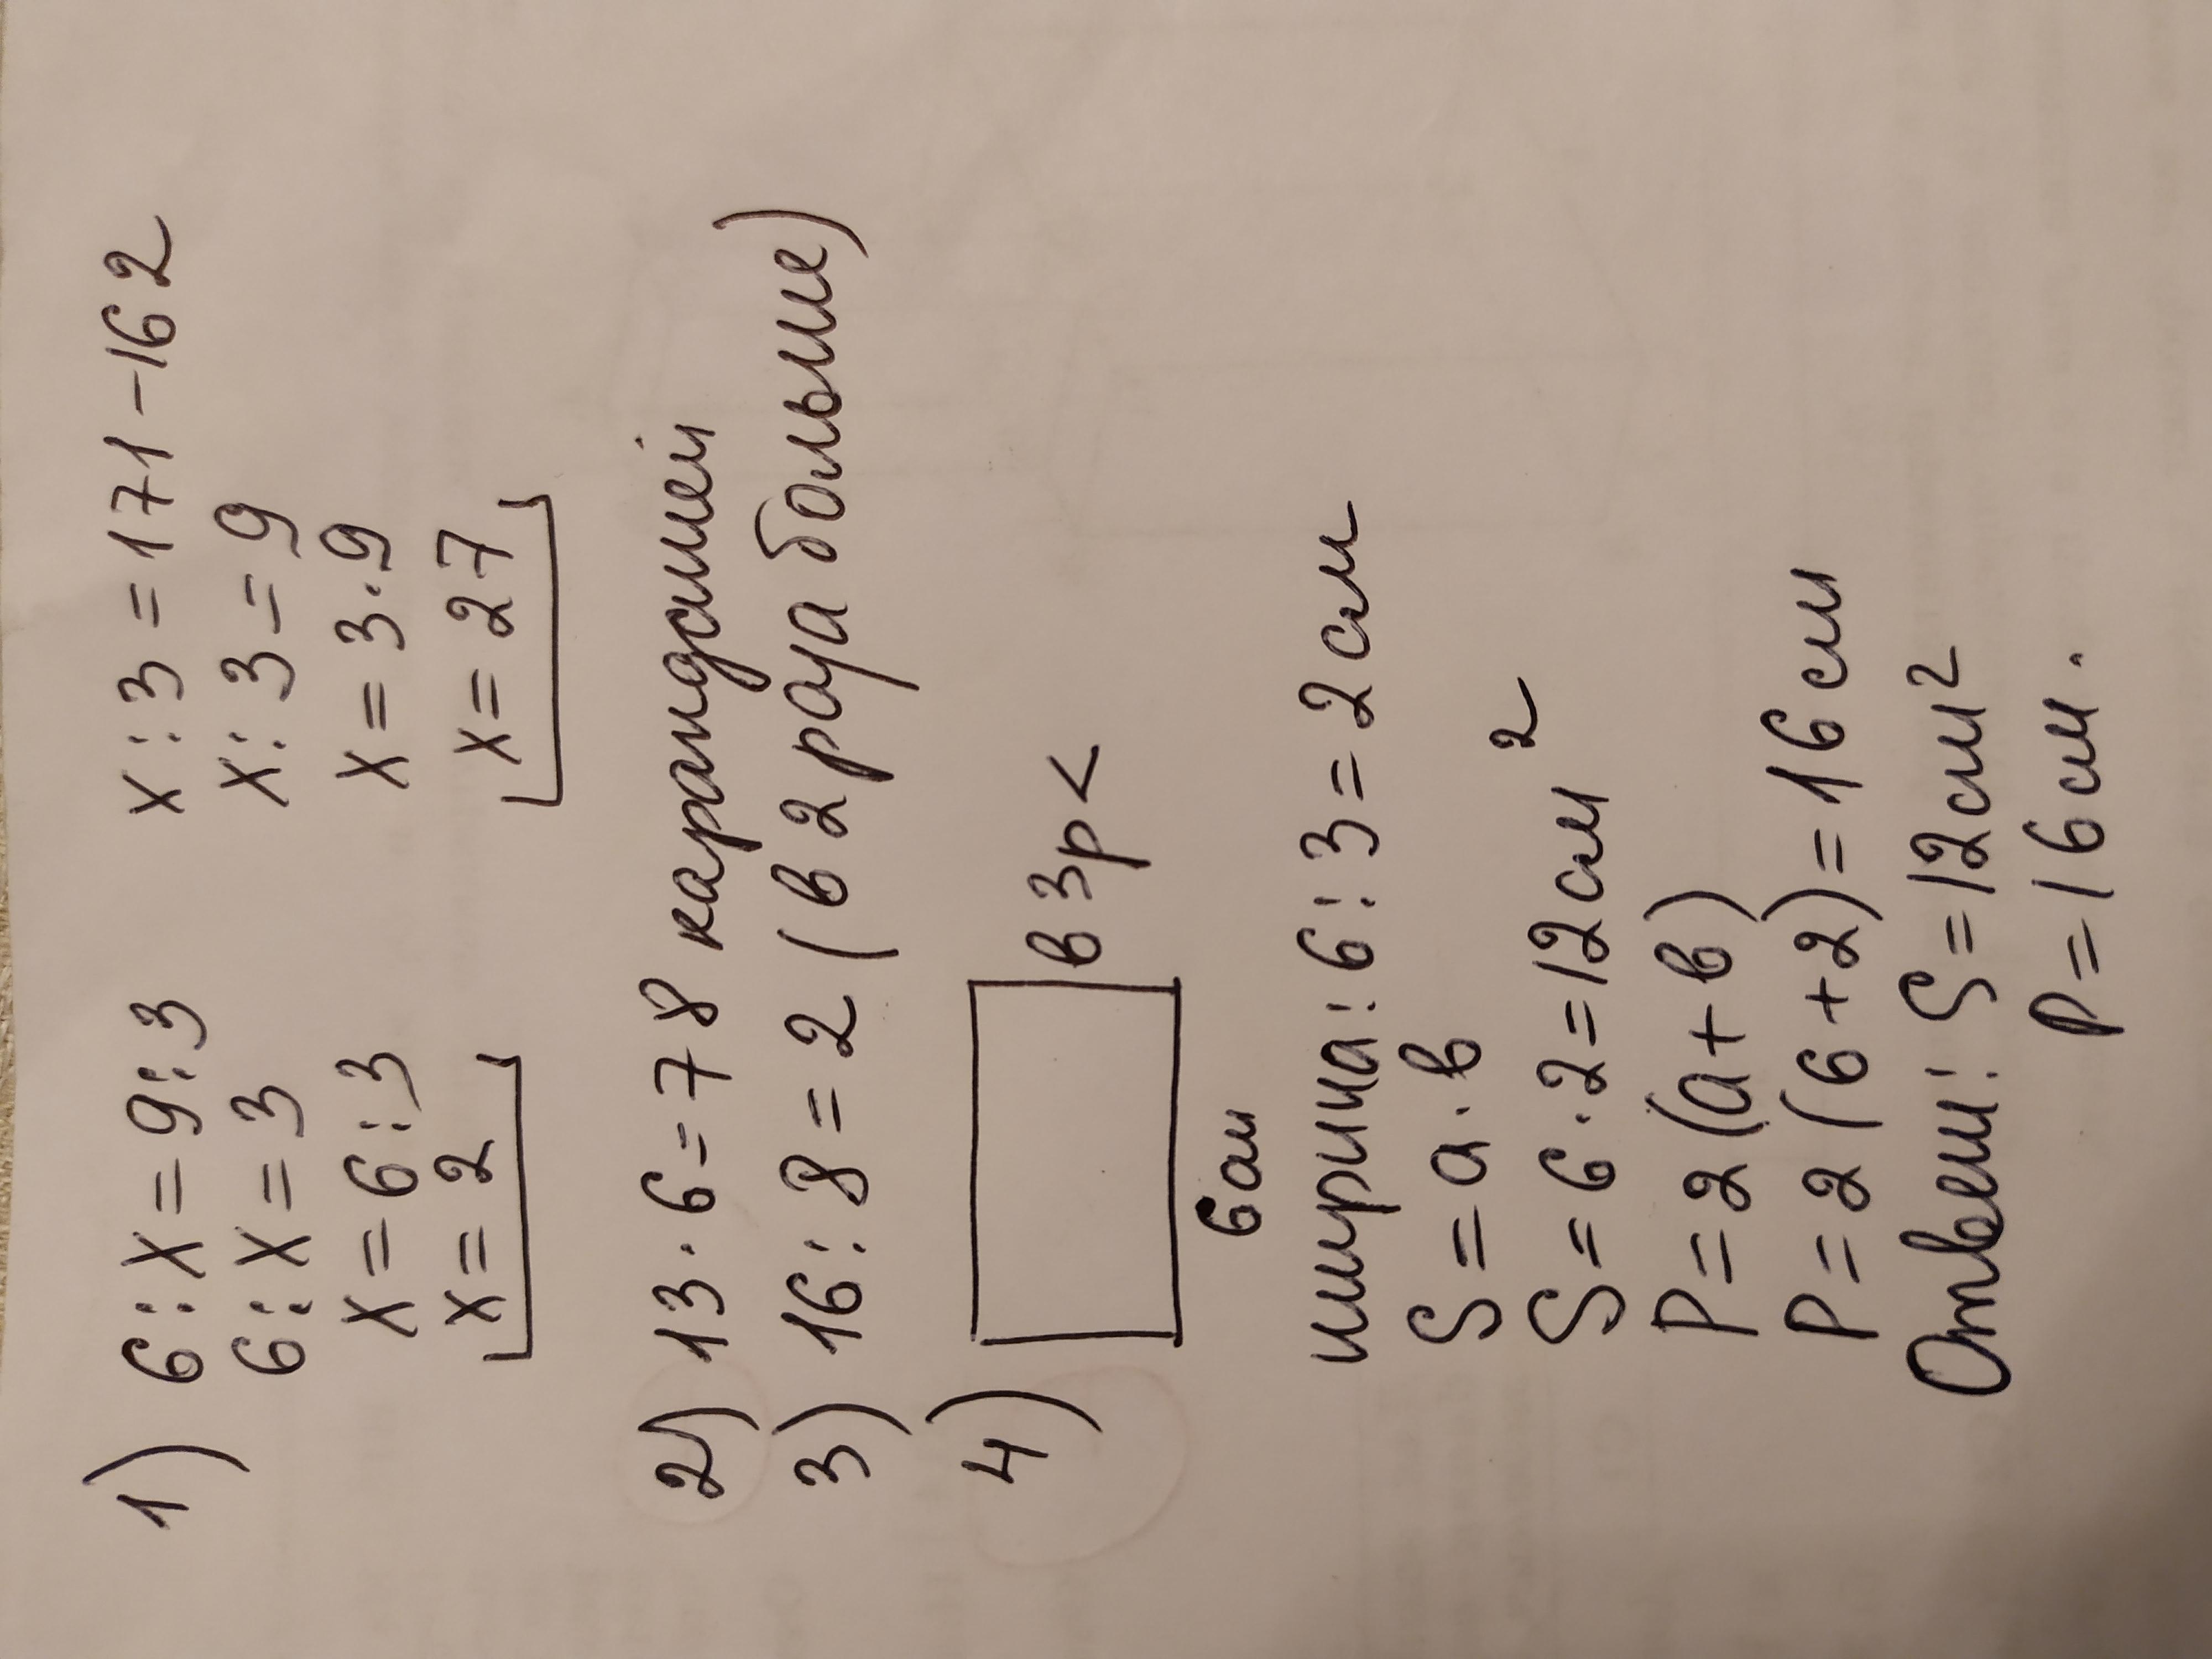 1) 6 : x = 9 : 3    x : 3 = 171 - 162
6 : x = 3    x : 3 = 9
x = 6 : 3    x = 3 · 9
x = 2    x = 27
2) 13 · 6 = 78 карандашей
3) 16 : 8 = 2 (в 2 раза больше)
4) в 3 р <
6 см
ширина: 6 : 3 = 2 см
S = a · b
S = 6 · 2 = 12 см²
P = 2 (a + b)
P = 2 (6 + 2) = 16 см
Ответ: S = 12 см²
P = 16 см.